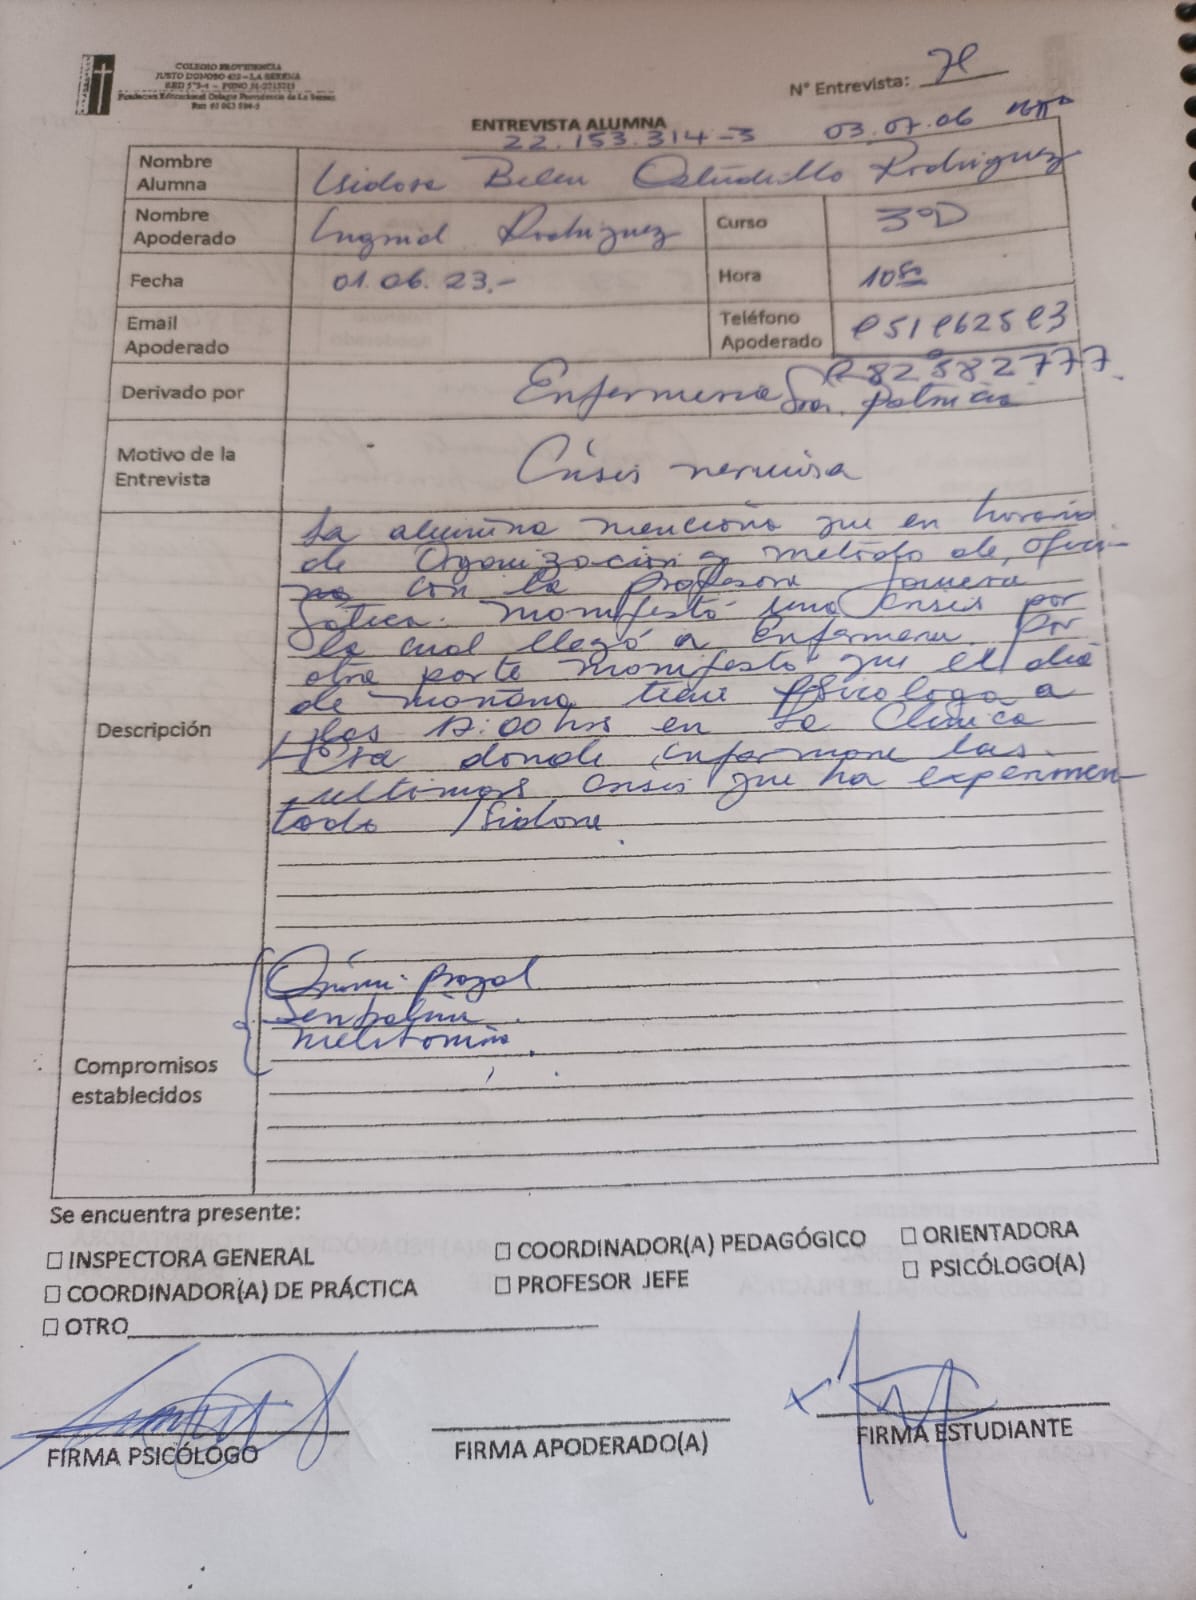 COLEGIO PROVIDENCIA
JUSTO DONOSO 420 – LA SERENA
RBD 573-4 – FONO 51-2215215
Fundación Educacional Colegio Providencia de La Serena
N° Entrevista:
ENTREVISTA ALUMNA
22.153.314-3 03.07.06
Nombre Alumna Isidora Belen Astudillo Rodriguez
Nombre Apoderado Ingrid Rodriguez Curso 3°D
Fecha 01.06.23.- Hora 10
Email Apoderado Teléfono Apoderado 951962593
982882777
Derivado por Enfermeria Sra. Patricia
Motivo de la Entrevista Crisis nerviosa
Descripción
La alumna menciona que en horario
de Organización y metodo de ofici-
na con la profesora
manifestó una crisis por
la cual llegó a Enfermeria. Por
otra parte manifestó que el dia
de mañana tiene Psicologo a
las 12:00 hrs en la Clinica
donde informare las
ultimas crisis que ha experimen-
tado Isidora
Compromisos establecidos
melatonina.
Se encuentra presente:
☐ INSPECTORA GENERAL ☐ COORDINADOR(A) PEDAGÓGICO ☐ ORIENTADORA
☐ COORDINADOR(A) DE PRÁCTICA ☐ PROFESOR JEFE ☐ PSICÓLOGO(A)
☐ OTRO
FIRMA PSICÓLOGO FIRMA APODERADO(A) FIRMA ESTUDIANTE